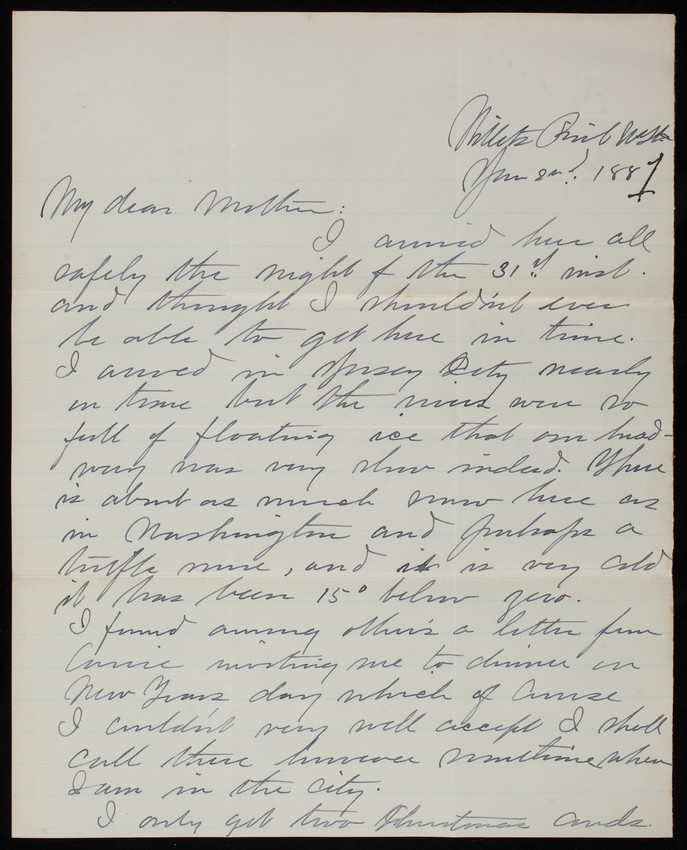 Willets Point N.Y.
Jan 2nd. 1881
My dear Mother:
I arrived here all
safely the night of the 31st inst.
and thought I shouldn't ever
be able to get here in time.
I arrived in Jersey City nearly
on time but the rivers were so
full of floating ice that our head-
way was very slow indeed. There
is about as much snow here as
in Washington and perhaps a
triffle more, and it is very cold
it has been 15° below zero.
I found among others a letter from
Carrie inviting me to dinner on
New Years day which of course
I couldn't very well accept I shall
call there however sometime when
I am in the city.
I only got two Christmas cards.